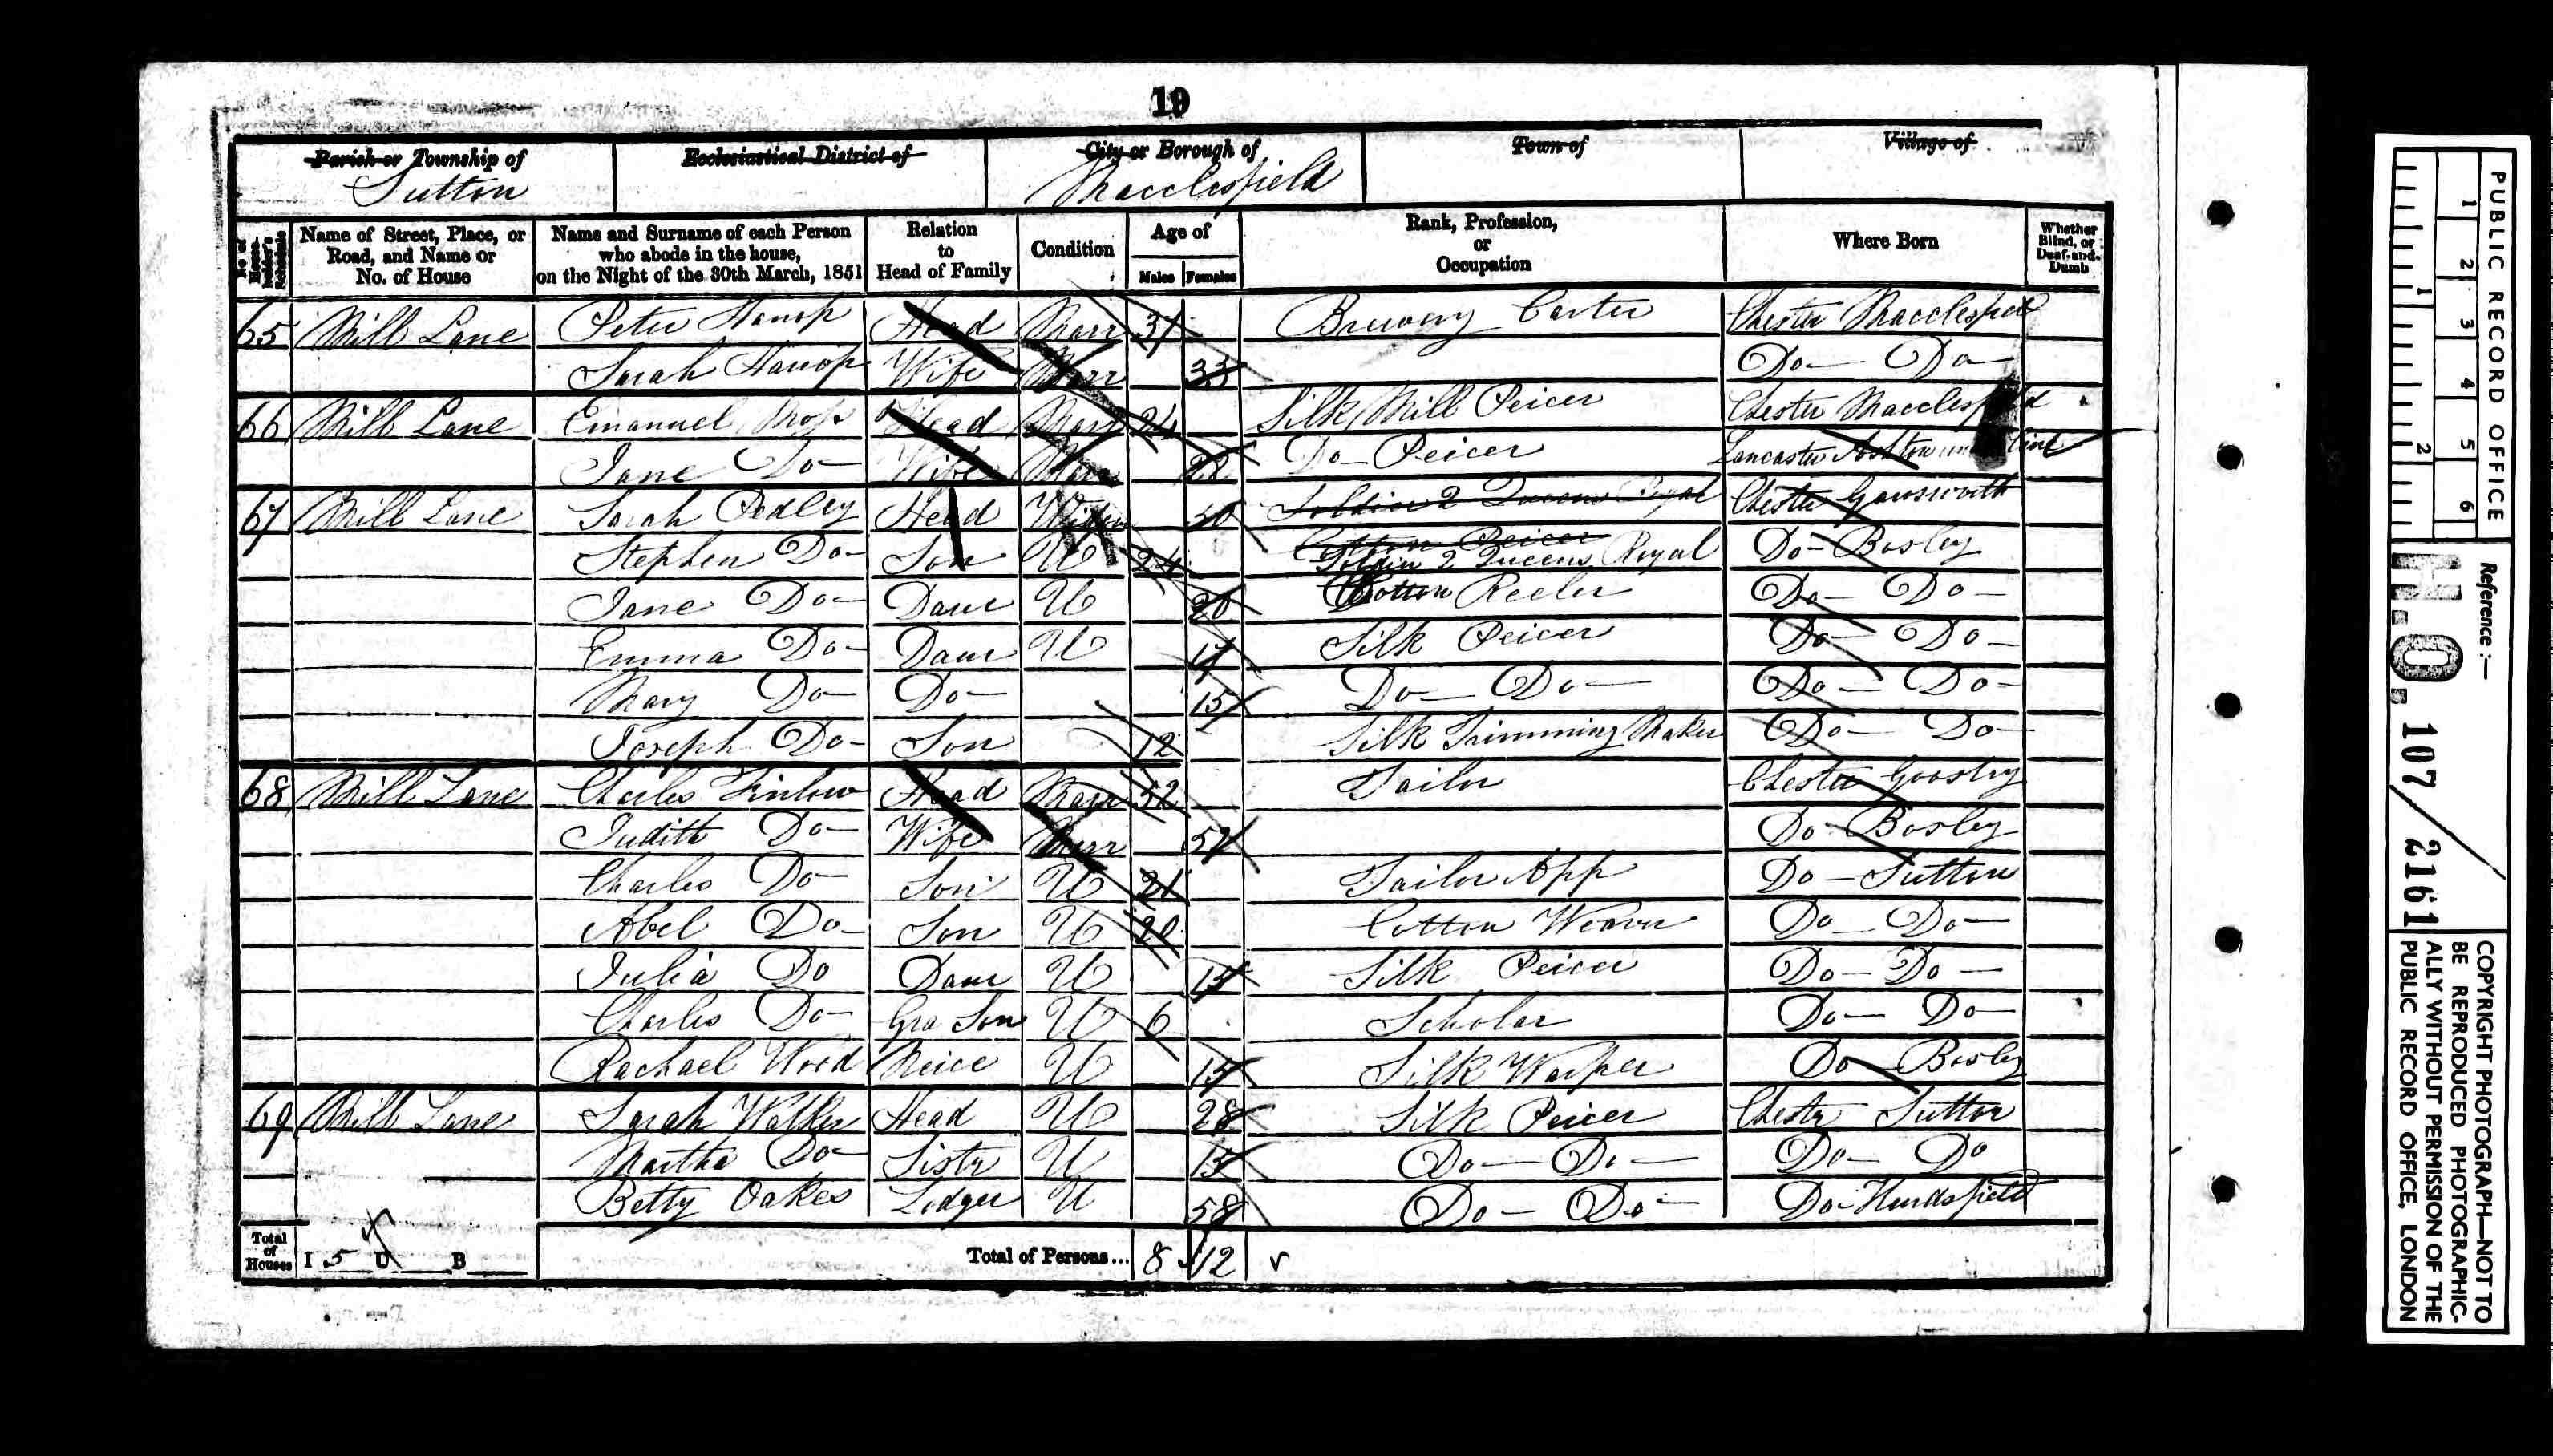 19
Parish or Township of Ecclesiastical District of City or Borough of Town of Village of
Sutton Macclesfield
No. of House-holder's Schedule Name of Street, Place, or Road, and Name or No. of House Name and Surname of each Person who abode in the house, on the Night of the 30th March, 1851 Relation to Head of Family Condition Age of Males Females Rank, Profession, or Occupation Where Born Whether Blind, or Deaf-and-Dumb
65 Mill Lane Peter Harrop Head Marr 31 Brewery Carter Chester Macclesfield
Sarah Harrop Wife Marr 33 Do Do
66 Mill Lane Emanuel Moss Head Marr 24 Silk Mill Peicer Chester Macclesfield
Jane Do Wife Marr 22 Do Peicer Lancaster Ashton
67 Mill Lane Sarah Pedley Head Widow 50 Soldier 2 Queens Royal Chester Gawsworth
Stephen Do Son U 24 Cotton Peicer Soldier 2 Queens Royal Do Bosley
Jane Do Daur U 20 Cotton Reeler Do Do
Emma Do Daur U 17 Silk Peicer Do Do
Mary Do Do 15 Do Do Do Do
Joseph Do Son 12 Silk Trimming Maker Do Do
68 Mill Lane Charles Finlow Head Marr 52 Tailor Chester Goostry
Judith Do Wife Marr Do Bosley
Charles Do Son U 21 Tailor App Do Sutton
Abel Do Son U 20 Cotton Weaver Do Do
Julia Do Daur U 15 Silk Peicer Do Do
Charles Do Gra Son U 6 Scholar Do Do
Rachael Wood Neice U 15 Silk Warper Do Bosley
69 Mill Lane Sarah Walker Head U 28 Silk Peicer Chestr Sutton
Martha Do Sistr U 15 Do Do Do Do
Betty Oakes Lodger U 58 Do Do Do Hurdsfield
Total of Houses I 5 U B Total of Persons... 8 12
PUBLIC RECORD OFFICE
1 2 3 4 5 6
1 2
Reference :—
H.O. 107/2161
COPYRIGHT PHOTOGRAPH—NOT TO
BE REPRODUCED PHOTOGRAPHIC-
ALLY WITHOUT PERMISSION OF THE
PUBLIC RECORD OFFICE, LONDON